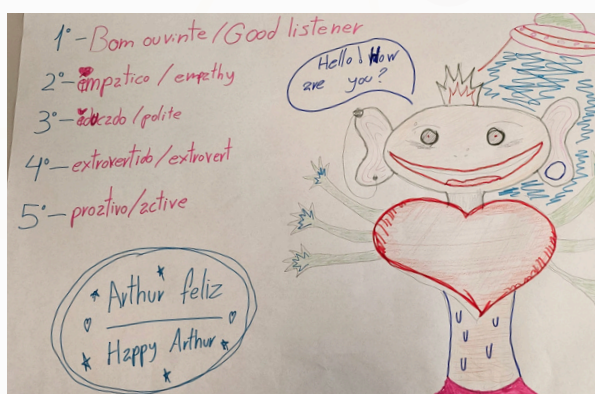 1º - Bom ouvinte / Good listener
2º - empatico / empathy
3º - educado / polite
4º - extrovertido / extrovert
5º - proativo / active
Hello! How
are you?
Arthur feliz
Happy Arthur